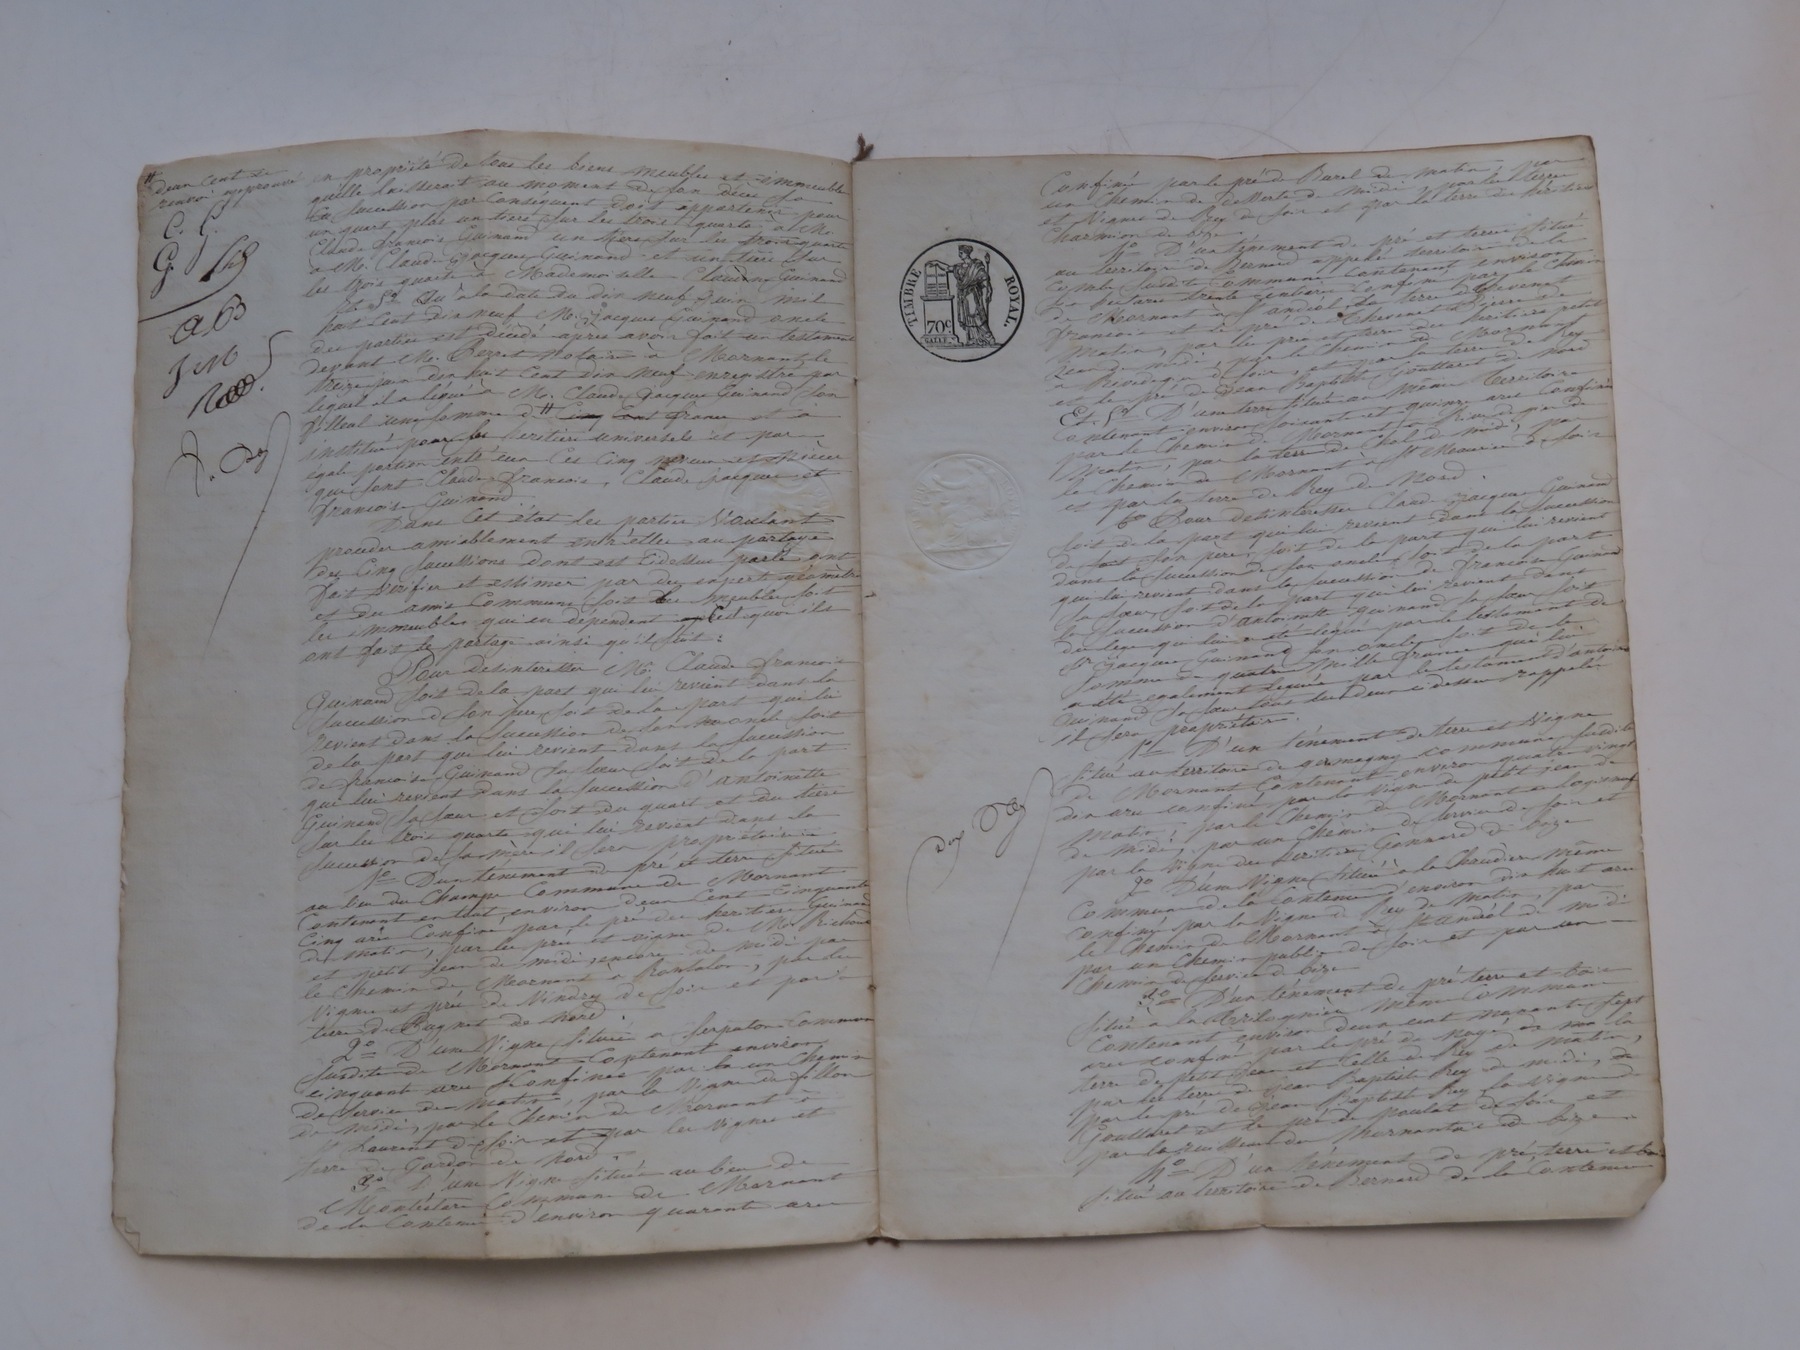 deux cent de
renvoi approuvé
C. G.
G.
en propriété de tous les biens meubles et immeubles
qu'elle laisserait au moment de son décès sa
succession par conséquent doit appartenir pour
un quart plus un tiers sur les trois quarts à M.
Claude françois Guinand un tiers sur les trois quarts
à M. Claude Jacques Guinand et un tiers sur
les trois quarts à Mademoiselle Claudine Guinand
Et 5° Qu'à la date du dix neuf juin mil
huit cent dix neuf M. Jacques Guinand oncle
des parties est décédé après avoir fait un testament
devant M. notaire à Mornant le
treize juin dix huit cent dix neuf enregistré par
lequel il a légué à M. Claude Jacques Guinand son
filleul une somme de cent francs et a
institué pour ses héritiers universels et par
égale portion entr'eux ses cinq neveux et nièces
qui sont Claude françois, Claude Jacques et
françois Guinand.
Dans cet état les parties voulant
procéder amiablement entr'elles au partage
des cinq successions dont est cidessus parlé ont
fait vérifier et estimer par des experts géomètres
et des amis communs soit les meubles soit
les immeubles qui en dépendent après quoi ils
ont fait le partage ainsi qu'il suit :
Pour désintéresser M. Claude françois
Guinand soit de la part qui lui revient dans la
succession de son père soit de la part qui lui
revient dans la succession de son oncle soit
de la part qui lui revient dans la succession
de françoise Guinand sa sœur soit de la part
qui lui revient dans la succession d'antoinette
Guinand sa sœur et soit du quart et du tiers
sur les trois quarts qui lui revient dans la
succession de sa mère il sera propriétaire
1° D'un tènement de pré et terre situé
au lieu du Champ commune de Mornant
contenant en tout environ deux cent cinquante
cinq ares confiné par le pré des héritiers Guinand
de matin, par les prés et vigne de M.
et petit Jean de midi encore de midi par
le chemin de Mornant à Rontalon, par les
vigne et pré de Vindry de soir et par la
terre de Bagnet de nord.
2° D'une vigne située à Serpaton commune
susdite de Mornant contenant environ
cinquante ares confinée par un chemin
de service de matin, par la vigne de fillon
de midi, par le chemin de Mornant à
St Laurent de soir et par les vignes et
terre de Gardon de nord.
3° D'une vigne située au lieu de
commune de Mornant
de la contenue d'environ quarante ares
TIMBRE ROYAL.
70c
confinée par le pré de Burel du matin, par
un chemin de desserte de midi par les terre
et vignes de Rey de soir et par la terre des héritiers
Charmion de bize.
4° D'un tènement de pré et terre situé
au territoire de Bernard appelé territoire de la
combe susdite commune contenant environ
un hectare trente centiares confiné par le chemin
de Mornant à St andéol la terre de Thevenet
françois et le pré de Thevenet Pierre de
matin, par les pré et terre des héritiers petit
Jean de midi, par le chemin de Mornant
à Rivedegier de soir, et par la terre de Rey
et le pré de Jean Baptiste Gouttaret de nord
Et 5° D'une terre située au même territoire
contenant environ soixante et quinze ares confinée
par le chemin de Mornant à Rive de gier de
matin, par la terre de Chol de midi, par
le chemin de Mornant à St Maurice de soir
et par la terre de Rey de nord.
6° Pour désintéresser Claude Jacques Guinand
soit de la part qui lui revient dans la succession
de feu son père, soit de la part qui lui revient
dans la succession de son oncle soit de la part
qui lui revient dans la succession de françoise Guinand
sa sœur, soit de la part qui lui revient dans
la succession d'antoinette Guinand sa sœur soit
du legs qui lui a été légué par le testament de
Sr Jacques Guinand son oncle, soit de la
somme de quatre mille francs qui lui
a été également léguée par le testament d'antoinette
Guinand sa sœur tous les deux ci dessus rappelés
il sera propriétaire.
1° D'un tènement de terre et vigne
situé au territoire de germagny commune susdite
de Mornant contenant environ quatre vingt
dix ares confiné par la vigne de petit Jean de
matin, par le chemin de Mornant au logis neuf
de midi, par un chemin de service de soir et
par la vigne des héritiers Gonnard de bize
2° D'une vigne située à la Chaudier même
commune de la contenue d'environ dix huit ares
confiné par la vigne de Rey de matin, par
le chemin de Mornant à St andéol de midi
par un chemin public de soir et par un
chemin de service de bize
3° D'un tènement de pré terre et bois
situé à la même commune
contenant environ deux cent nonante sept
ares confiné par le pré de de matin la
terre de petit Jean et celle de Rey de matin,
par les terre de Jean Baptiste Rey de midi, de
par le pré de Jean Baptiste Rey la vigne de
Gouttaret et le pré de poulat de soir et
par le ruisseau du Mornantais de bize
4° D'un tènement de pré, terre et bois
situé au territoire de Bernard de la contenue